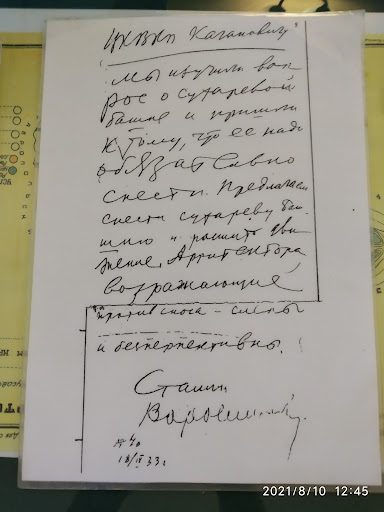 ЦКВКП Кагановичу
Мы изучили воп
рос о сухаревой
башне и пришли
к тому, что ее надо
обязательно
снести. Предлагаем
снести сухареву баш
шню и расшить дви
жение. Архитектора
возражающие
против сноса – слепы
и бесперпективны.
Сталин
Ворошилов.
№ 40
18/IX 33 г
2021/8/10 12:45